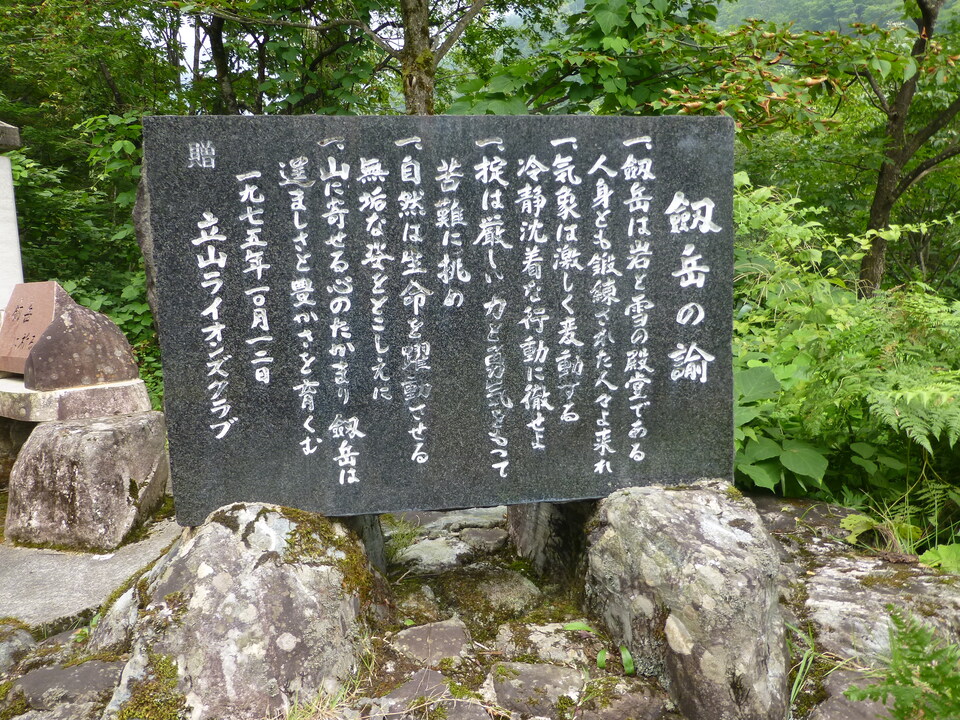 劔岳の諭
一、劔岳は岩と雪の殿堂である
人身とも鍛錬された人々よ来れ
一、気象は激しく変動する
冷静沈着な行動に徹せよ
一、掟は厳しい 力と勇気をもって
苦難に挑め
一、自然は生命を躍動させる
無垢な姿をとこしえに
一、山に寄せる心のたかまり 劔岳は
逞ましさと豊かさを育くむ
一九七五年一〇月一二日
立山ライオンズクラブ
贈